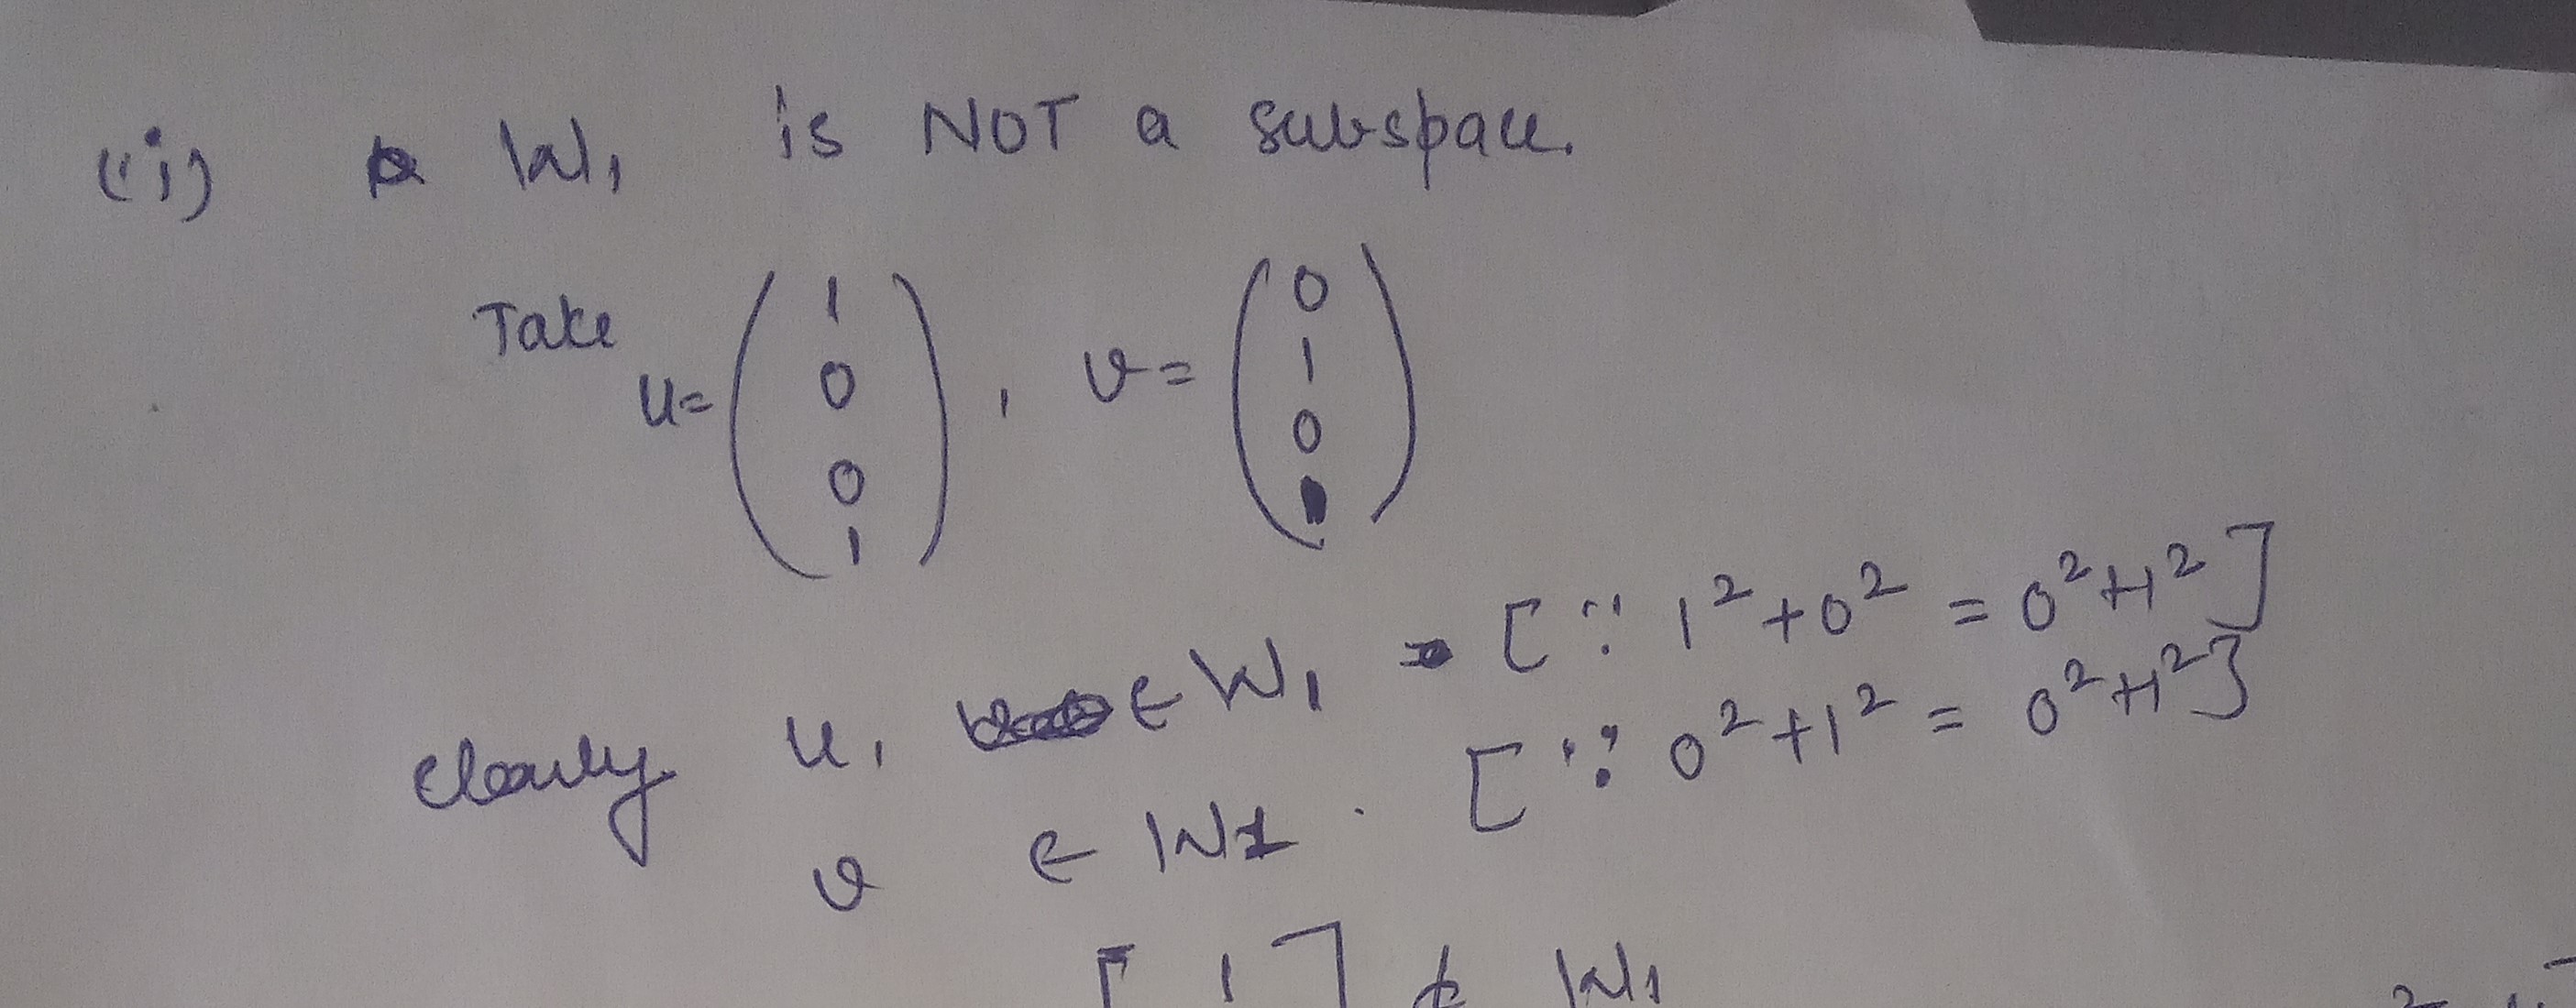 (i) W₁ is NOT a subspace.
Take u = ( 1 0 0 1 ) , v = ( 0 1 0 1 )
Clearly u, ∈ W₁ [∵ 1² + 0² = 0² + 1²]
v ∈ W₁ . [∵ 0² + 1² = 0² + 1²]
[ 1 ] ∉ W₁